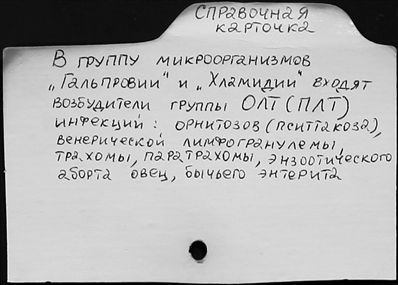 СПРАВОЧНАЯ
КАРТОЧКА
В ГРУППУ МИКРООРГАНИЗМОВ
„ГАЛЬПРОВИИ" И „ХЛАМИДИИ" ВХОДЯТ
ВОЗБУДИТЕЛИ ГРУППЫ ОЛТ (ПЛТ)
ИНФЕКЦИЙ: ОРНИТОЗОВ (ПСИТТАКОЗА),
ВЕНЕРИЧЕСКОЙ ЛИМФОГРАНУЛЕМЫ,
ТРАХОМЫ, ПАРАТРАХОМЫ, ЭНЗООТИЧЕСКОГО
АБОРТА ОВЕЦ, БЫЧЬЕГО ЭНТЕРИТА